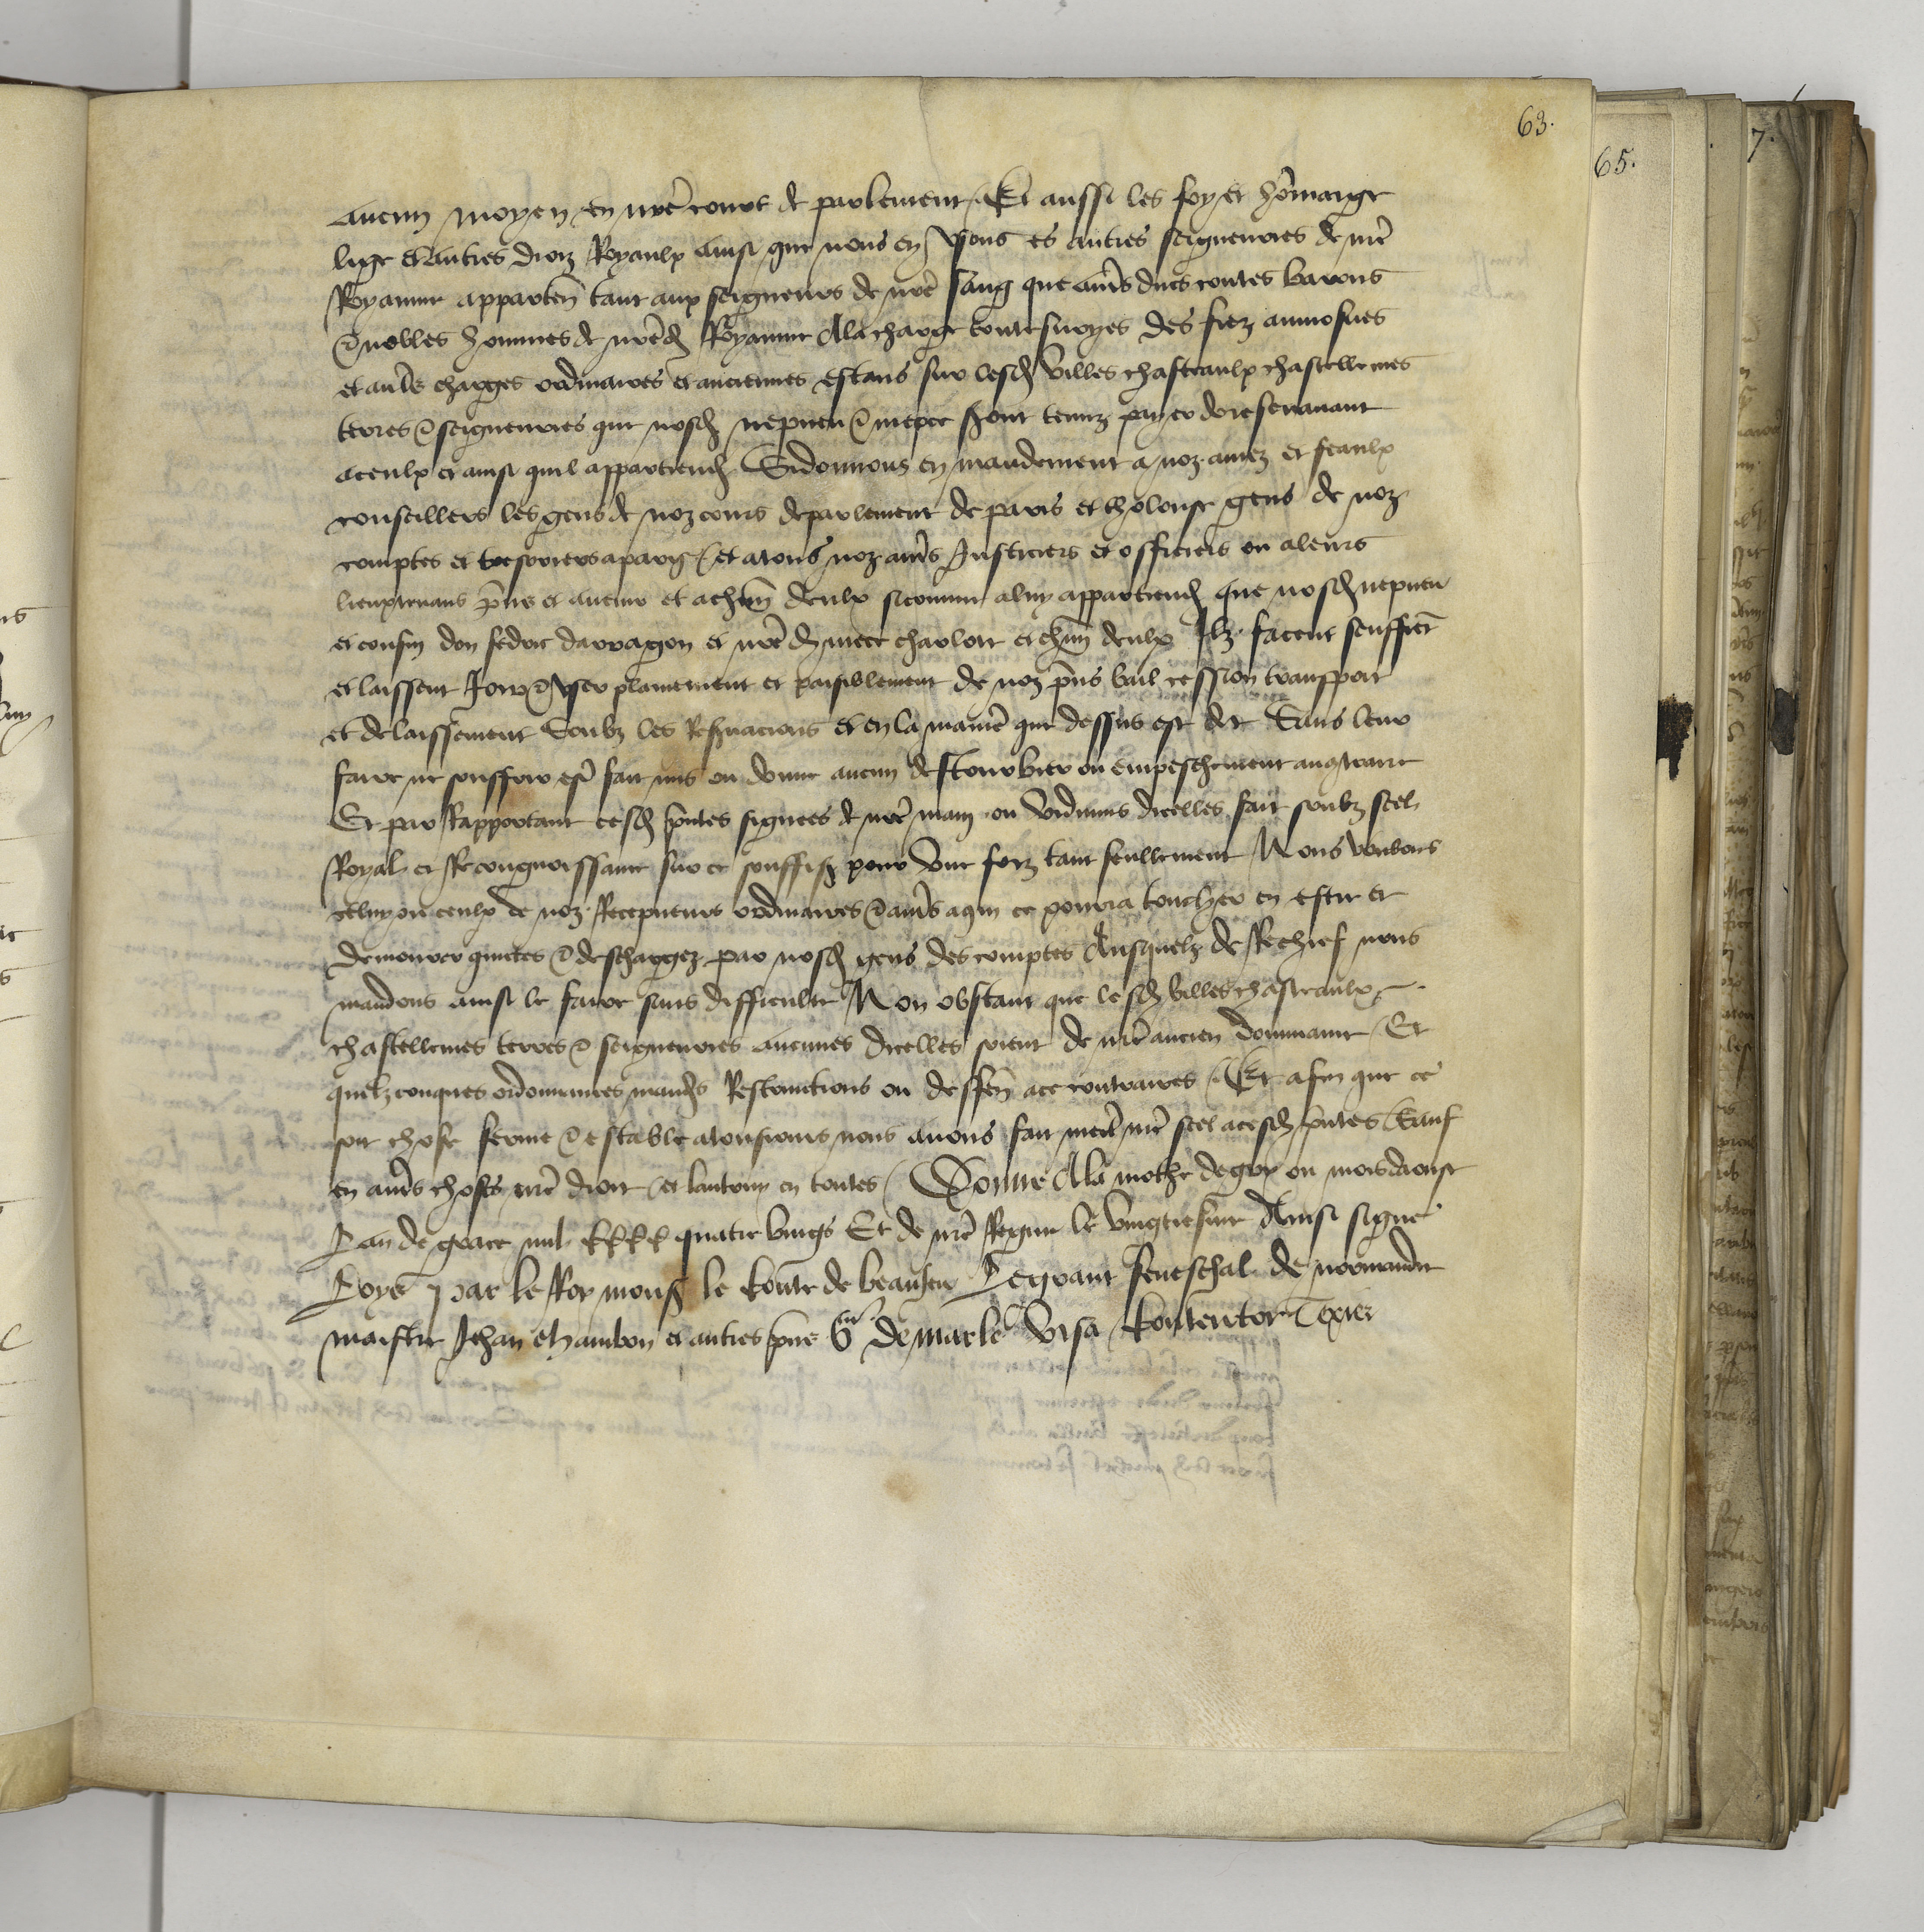 63.
65.
7.
aucun moyen en nre court de parlement Et aussi les foy et hommaige
lige et autres droiz Royaulx ainsi que nous en usons es autres seigneuries de nre
Royaume apparten tant aux seigneurs de nre sang que aures ducs contes barons
& nobles hommes de nred Royaume Ala charge toutesuoyes des fiez aumosnes
et aures charges ordinaires et anciennes estans sur lesd villes chasteaulx chastellenies
terres & seigneuries que nosd nepueu & niepce seront tenuz payer doresenauant
aceulx et ainsi quil appartiendra Si donnons en mandement a noz amez et feaulx
conseillers les gens de noz cours de parlement de paris et tholouse gens de noz
comptes et tresoriers a paris et atous noz aures Justiciers et officiers ou aleurs
lieuxtenans pns et auenir et achun deulx si comme aluy appartiendra que nosd nepueu
et cousin don federic darragon et nred niece charlote et chun deulx Ilz facent seuffrent
et laissent Joir & user plainement et paisiblement de noz pns bail cession transport
et delaissement Soubz les Reseruacions et en la maniere que dessus est dit Sans leur
faire ne souffrir estre fait mis ou donne aucun destourbier ou empeschement au contraire
Et par Rapportant cesd pntes signees de nre main ou vidimus dicelles fait soubz scel
Royal et Recongnoissance sur ce souffis pour une foiz tant seullement Nous voulons
celuy ou ceulx de noz Recepueurs ordinaires & aures aqui ce pourra toucher en estre et
demourer quictes & deschargez par nosd gens des comptes Ausquelz de Rechief nous
mandons ainsi le faire sans difficulte Non obstant que lesd villes chasteaulx
chastellenies terres & seigneuries aucunes dicelles soient de nre ancien dommaine Et
quelzconques ordonnances mandemens Restrinctions ou deffen ace contraires Et afin que ce
soit chose ferme & estable atousiours nous auons fait mectre nre scel acesd pntes Sauf
en aures choses nre droit et lautruy en toutes Donne Ala mothe degry ou mois daoust
Lan de grace mil cccc quatre vings Et de nre Regne le vingtiesme Ainsi signe
Loys par le Roy mons le conte de beaujeu Legrant seneschal de normandie
maistre Jehan chambon et autres pns G de marle Visa Contentor Texier